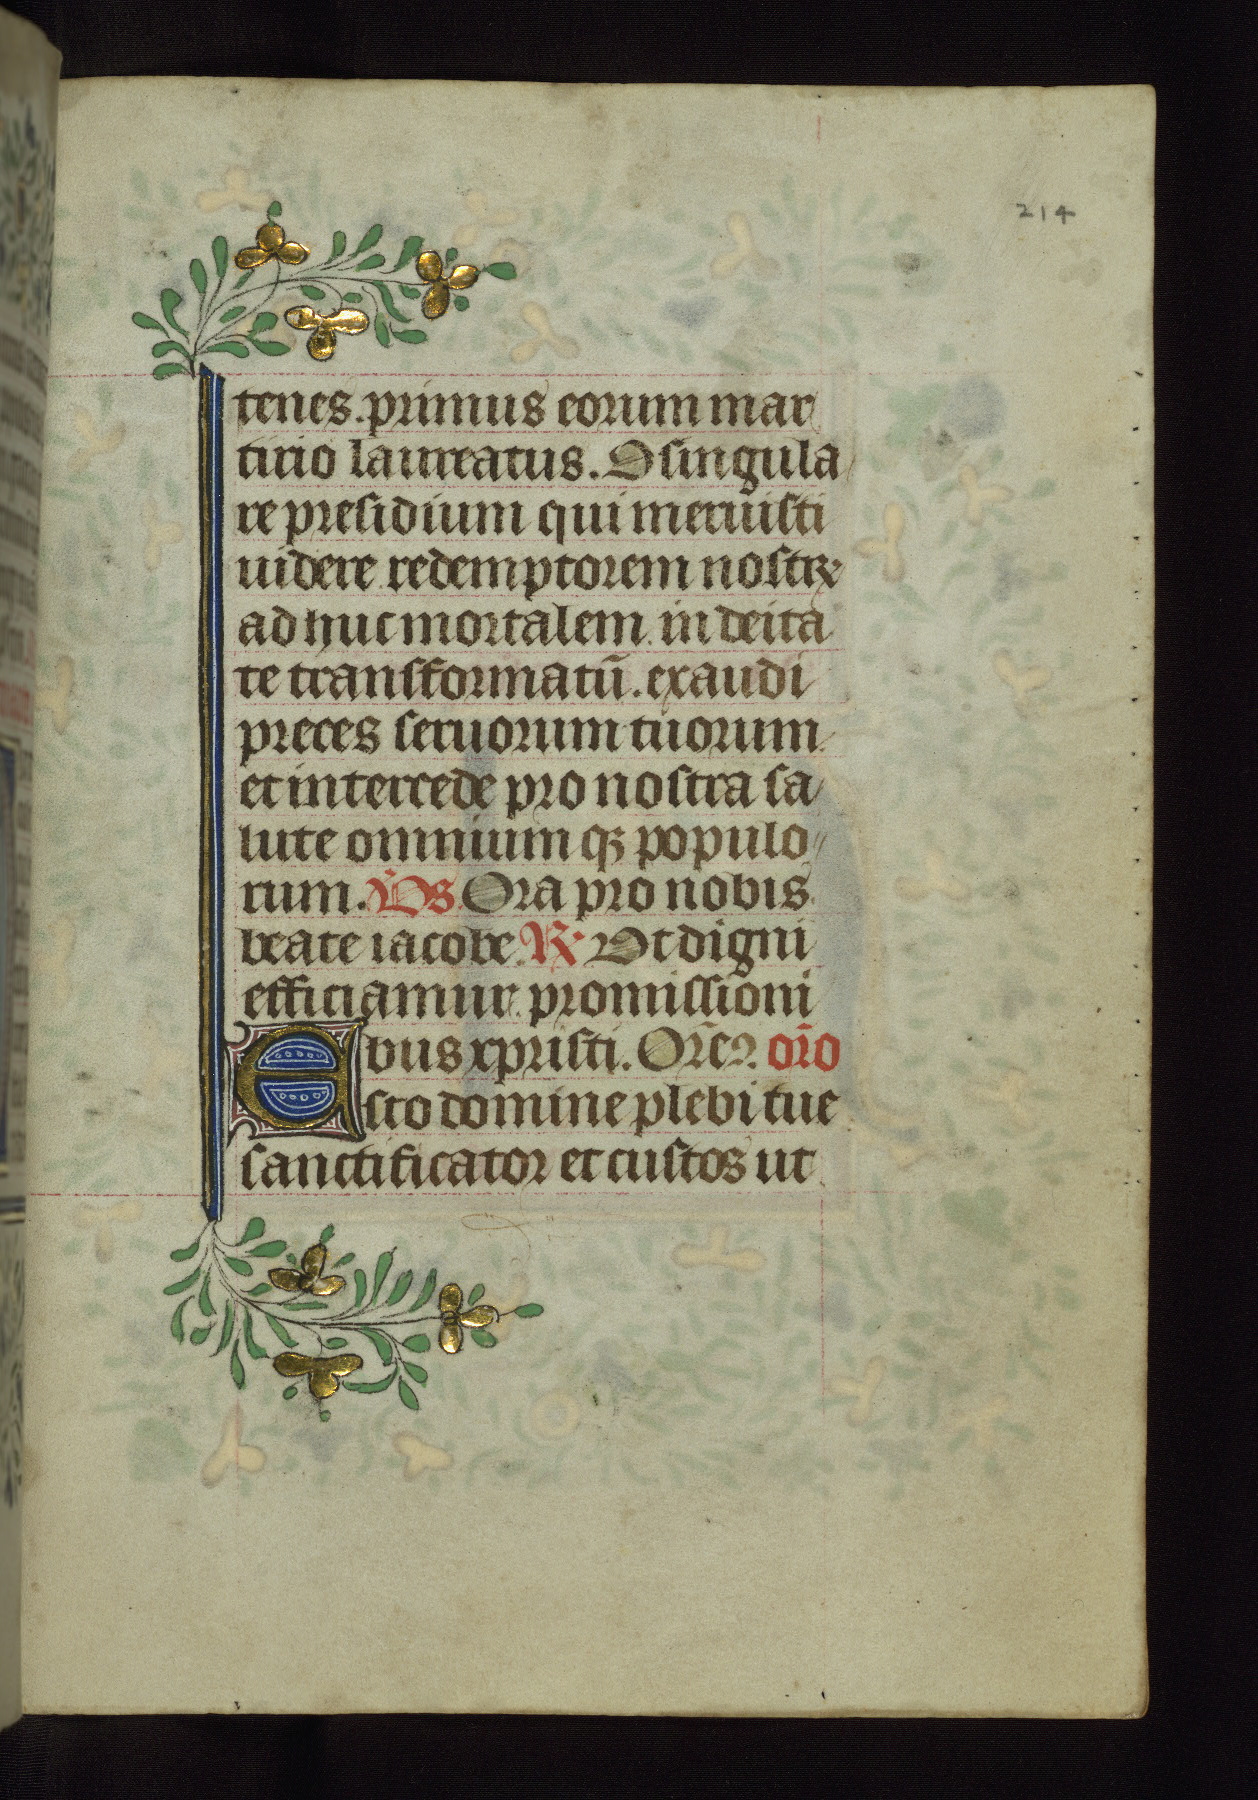 214
tenes. primus eorum mar
tirio laureatus. O singula
re presidium qui meruisti
uidere redemptorem nostrꝝ
ad huc mortalem in deita
te transformatū. exaudi
preces seruorum tuorum
et intercede pro nostra sa
lute omnium qꝫ populo
rum. V̄s Ora pro nobis
beate iacobe. ℟ Vt digni
efficiamur promissioni
bus xpristi. Orem̄ꝰ. oro̅
Esto domine plebi tue
sanctificator et custos ut